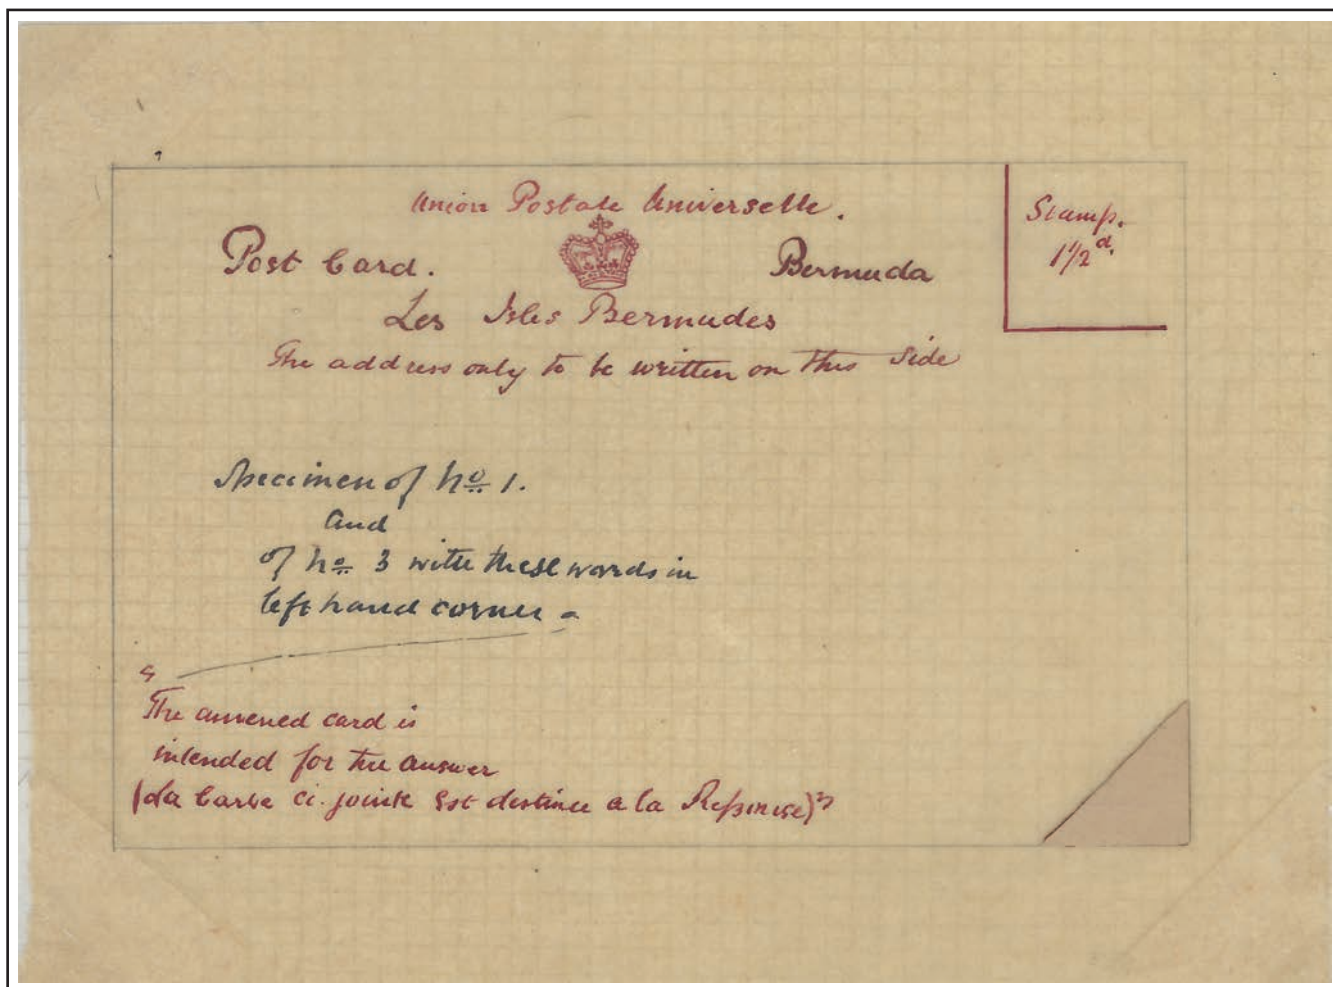 Union Postale Universelle.
Post Card. Bermuda
Stamp.
1 1/2 d.
Les Isles Bermudes
The address only to be written on this side
Specimen of No 1.
and
of No 3 with these words in
left hand corner -
"
The annexed card is
intended for the answer
(La Carte ci. jointe est destinee a la Reponse)"